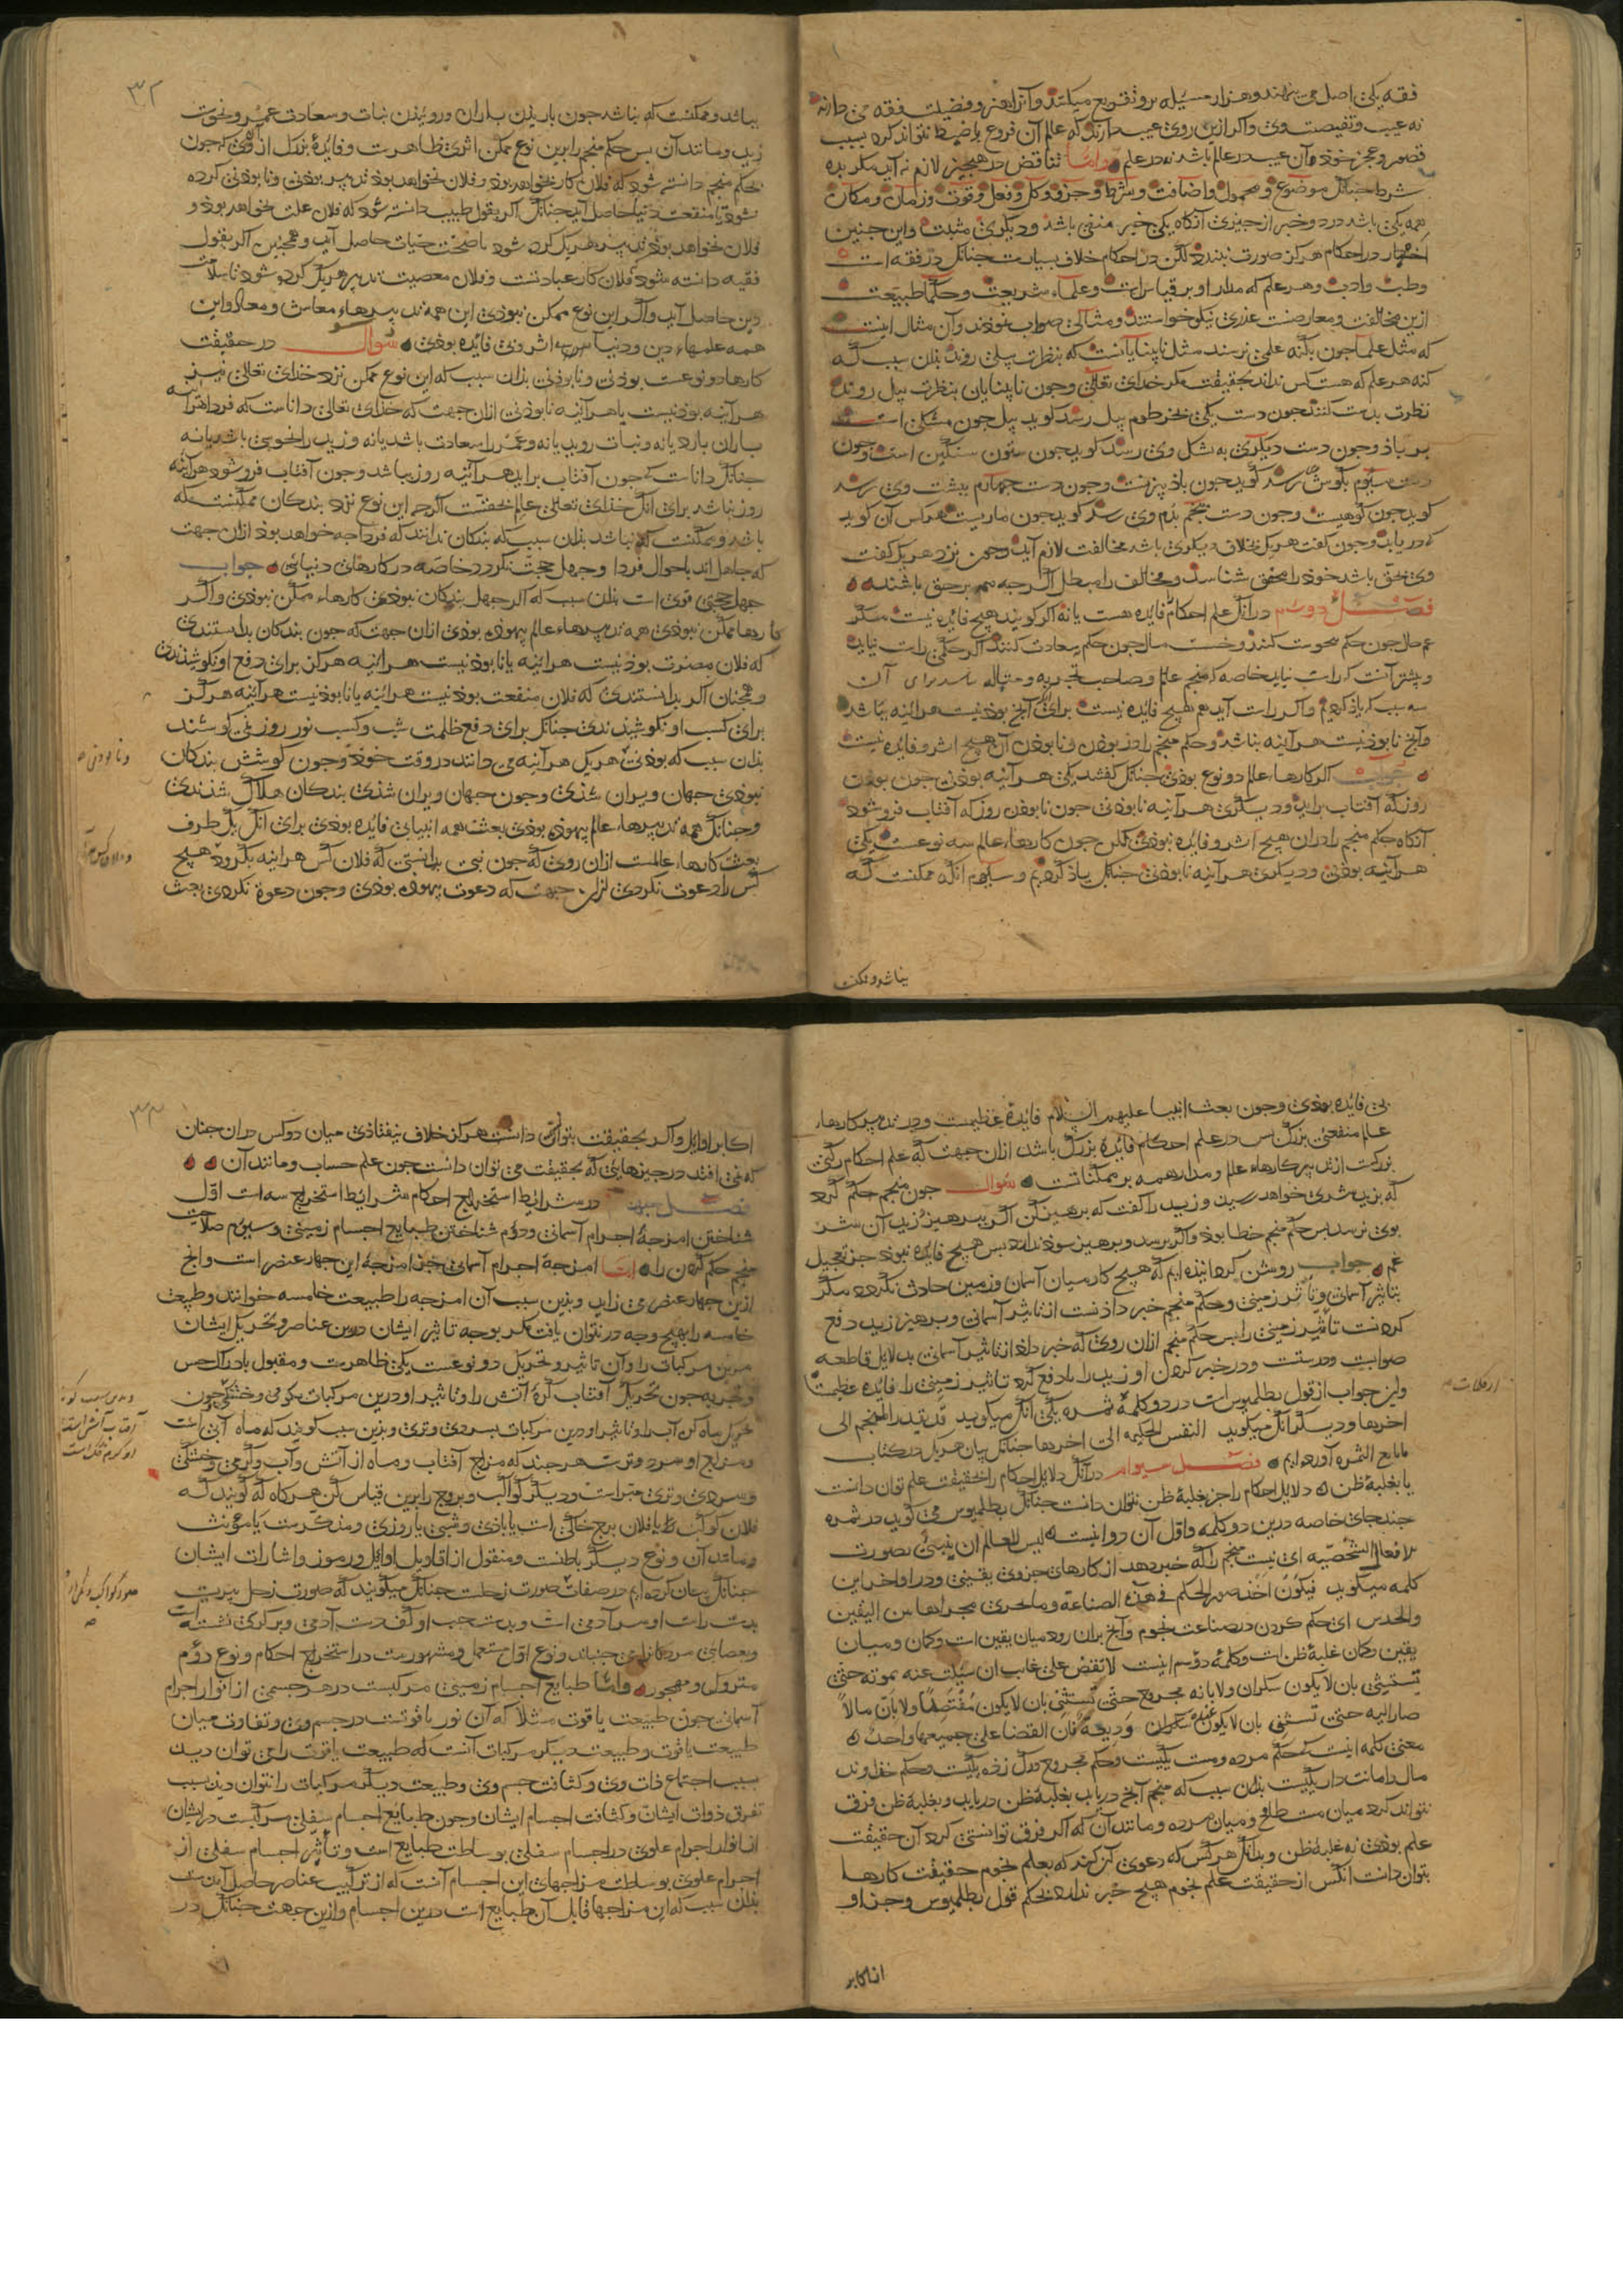 فقه یکی اصل می نهند و هزار مسیله برو تفریع میکنند و آنرا هنر و فضیلت فقه می دارند
نه عیب و نقیصت وی و اگر ازین روی عیب دارند که عالم آن فروع را ضبط نتواند کرد بسبب
قصور و عجز خود آن عیب در عالم باشد نه در علم و اما تناقض در هیچیز لازم نه آید مگر بده
شرط چنانک موضوع و محمول و اضافت و شرط و جزو و کل و فعل و قوت و زمان و مکان
همه یکی باشد در دو خبر از چیزی آنکاه یکی خبر منفی باشد و دیکری مثبت و این چنین
اخبار در احکام هرکز صورت نبندد لکن در احکام خلاف بسیارست چنانک در فقه است
و طب و ادب و هر علم که مدار او بر قیاس است و علماء شریعت و حکما طبیعت
ازین مخالفت و معارضت عذری نیکو خواستند و مثالی صواب نمودند و آن مثال اینست
که مثل علما چون بکنه علمی نرسند مثل نابینایانست که بنظرت پیلی روند بذان سبب که
کنه هر علم که هست کس نداند بحقیقت مکر خدای تعالی و چون نابینایان بنظرت پیل روند
نظرت بدست کنند چون دست یکی بخرطوم پیل رسد کوید پیل چون مشکی است
بر باذ و چون دست دیکری به شکل وی رسد کوید چون ستون سنکین است و چون
دست سیوم بکوش رسد کوید چون باذ بیزنست و چون دست چهارم ببشت وی رسد
کوید چون کوهیست و چون دست پنجم بدم وی رسد کوید چون ماریست هر کس آن کوید
که دریابد و چون کفت هر یک بخلاف دیکری باشد مخالفت لازم آید و چون نزد هر یک کفت
وی بحق باشد خود را محق شناسد و مخالف را مبطل اکرچه همه بر حق باشند
فصل دوم در آنک علم احکام را فایده هست یا نه اکر کویند هیچ فایده نیست مکر
غم حال چون حکم نحوست کنند و خست مال چون حکم سعادت کنند اکر حکمی راست نیاید
و بیشتر آنست که راست نیاید خاصه که منجم عالم و صاحب تجربه و حیاله نباشد برای آن
سه سبب که یاذ کردیم و اکر راست آید هم هیچ فایده نیست برای آنک آنچ بوذنیست هرآینه بباشد
و آنچ نابوذنیست هرآینه نباشد و حکم منجم را در بوذن و نابوذن آن هیچ اثر و فایده نیست
جواب اکر کارهاء عالم دو نوع بوذی چنانک کفتند یکی هرآینه بوذنی چون بوذن
روز که آفتاب برآید و دیکری هرآینه نابوذنی چون نابوذن روز که آفتاب فرو شود
آنکاه حکم منجم را در ان هیچ اثر و فایده نبوذی لکن چون کارهاء عالم سه نوعست یکی
هرآینه بوذنی و دیکری هرآینه نابوذنی چنانک یاذ کردیم و سیوم آنکه ممکنست که
بباشد و ممکن
۳۲
بباشد و ممکنست که نباشد چون باریذن باران و روییذن نبات و سعادت عمرو و نحوست
زید و مانند آن بس حکم منجم را برین نوع ممکن اثری ظاهرست و فایدهٔ بزرک از آن روی که چون
بحکم منجم دانسته شود که فلان کار بخواهد بوذ و فلان نخواهد بوذ تدبیر بوذنی و نابوذنی کرده
شود تا منفعت دنیا حاصل آید چنانک اکر بقول طبیب دانسته شود که فلان علت بخواهد بوذ و
فلان نخواهد بوذ تدبیر هر یک کرده شود تا صحت حیات حاصل آید و همچنین اکر بقول
فقیه دانسته شود که فلان کار عبادتست و فلان معصیت تدبیر هر یک کرده شود تا سلامت
دین حاصل آید و اکر این نوع ممکن نبوذی این همه تدبیرهاء معاش و معاد و این
همه علمهاء دین و دنیا بی اثر و بی فایده بوذی سوال در حقیقت
کارها دو نوعست بوذنی و نابوذنی بذان سبب که این نوع ممکن نزد خدای تعالی نیز
هرآینه بوذنیست یا هرآینه نابوذنی ازان جهت که خدای تعالی داناست که فردا هرآینه
باران بارد یا نه و نبات روید یا نه و عمرو را سعادت باشد یا نه و زید را نحوس باشد یا نه
چنانک داناست که چون آفتاب برآید هرآینه روز بباشد و چون آفتاب فرو شود هرآینه
روز نباشد برای آنک خدای تعالی عالم بحقست اکرچه این نوع نزد بندکان ممکنست که
باشد و ممکنست که نباشد بذان سبب که بندکان ندانند که فردا چه خواهد بوذ ازان جهت
که جاهل اند باحوال فردا و جهل حجت نکردد خاصه در کارهای دنیائی جواب
جهل حجتی قوی است بذان سبب که اکر جهل بندکان نبوذی کارهاء ممکن نبوذی و اکر
کارها ممکن نبوذی همه تدبیرهاء عالم بیهوده بوذی ازان جهت که چون بندکان بدانستندی
که فلان مضرت بوذنیست هرآینه یا نابوذنیست هرآینه هرکز برای دفع او نکوشیذندی
و همچنان اکر بدانستندی که فلان منفعت بوذنیست هرآینه یا نابوذنیست هرآینه هرکز
برای کسب او نکوشیذندی چنانک برای دفع ظلمت شب و کسب نور روز نمی کوشند
بذان سبب که بوذنی هر یک هرآینه می دانند در وقت خوذ و چون کوشش بندکان
نبوذی جهان ویران شذی و چون جهان ویران شذی بندکان هلاک شذندی
و چنانک همه تدبیرهاء عالم بیهوذه بوذی بعثت همه انبیا بی فایده بوذی برای آنک یک طرف
بعثت کارهاء عالمست ازان روی که چون نبی بدانستی که فلان کس هرآینه بکرود هیچ
کس را دعوت نکردی ازان جهت که دعوت بیهوده بوذی و چون دعوة نکردی بعثت
و نابوذنی
بی فایده بوذی و چون بعثت انبیا علیهم السلام فایدهٔ عظیمست و در تدبیر کارهاء
عالم منفعتی بزرک بس در علم احکام فایدهٔ بزرک باشد ازان جهت که علم احکام رکنی
بزرکست از تدبیر کارهاء عالم و مدار همه بر ممکناتست سوال چون منجم حکم کرد
که بزید شری خواهد رسید و زید را کفت که برهیز کن اکر ببرهیز زید آن شر
بوی نرسد بس حکم منجم خطا بوذ و اکر برسد و برهیز سود ندارد بس هیچ فایده نبوذ جز تعجیل
غم جواب روشن کردانیذه ایم که هیچ کار میان آسمان و زمین حادث نکردد مکر
بتاثیر آسمانی و تاثیر زمینی و حکم منجم خبر داذنست از تاثیر آسمانی و برهیز زید دفع
کردنست تأثیر زمینی را بس حکم منجم ازان روی که خبر داد از تاثیر آسمانی بدلایل قاطعه
صوابست و درستست و در خبر کردن او زید را تا دفع کرد تاثیر زمینی را فایده عظیمست
و این جواب از قول بطلمیوس است در دو کلمهٔ ثمره یکی آنک میکوید قد یقدر المنجم الی
آخرها و دیکر آنک میکوید النفس الحکیمه الی اخرها چنانک بیان هر یک در کتاب
ما یابع الثمره آورده ایم فصل سیوم در آنک دلایل احکام را بحقیقت علم توان دانست
یا بغلبهٔ ظن دلایل احکام را جز بغلبهٔ ظن نتوان دانست چنانک بطلمیوس می کوید در ثمره
چند جای خاصه درین دو کلمه و اول آن دو اینست لیس للعالم ان ینبئ بصورت
الافعال الشخصیه ای نیست منجم را که خبر دهد از کارهای جزوی بیقینی و در اواخر این
کلمه میکوید فیکون اخذ صور الحکم فی هذه الصناعة وما یجری مجراها من الیقین
والحدس ای حکم کردن در صناعت نجوم و آنچ بران رود میان یقین است و کمان و میان
یقین و کمان غلبهٔ ظن است و کلمهٔ دوم اینست لا تقض علی غایب ان سئلت عنه بموته حتی
تستثنی بان لا یکون سکران ولا بانه مجروح حتی تستثنی بان لا یکون مفتصدا ولا بان مالا
صار الیه حتی تستثنی بان لا یکون عنده ودیعة فان القضا علی جمیعها واحد
معنی کلمه اینست که حکم مرده و مست یکیست و حکم مجروح و رک زده یکیست و حکم خذاوند
مال و امانت دار یکیست بذان سبب که منجم آنچ دریابد بغلبهٔ ظن دریابد و بغلبهٔ ظن فرق
نتواند کرد میان مست طافح و میان مرده و مانند آن که اکر فرق توانستی کرد آن حقیقت
علم بوذی نه غلبهٔ ظن و بدانک هر کس که دعوی آن کند که بعلم نجوم حقیقت کارها
بتوان دانست انکس از حقیقت علم نجوم هیچ خبر ندارد بحکم قول بطلمیوس و جز او
از اکابر
۳۳
اکابر اوایل و اکر بحقیقت بتوانی دانست هرکز خلاف نیفتاذی میان دو کس در ان چنان
که نمی افتد در چیزهایی که بحقیقت می توان دانست چون علم حساب و مانند آن
فصل چهارم در شرایط استخراج احکام شرایط استخراج سه است اول
شناختن امزجهٔ اجرام آسمانی و دوم شناختن طبایع اجسام زمینی و سیوم صلاحیت
منجم حکم کردن را اما امزجهٔ اجرام آسمانی جز امزجهٔ این چهار عنصر است و آنچ
ازین چهار عنصر می زاید و بذین سبب آن امزجه را طبیعت خامسه خوانند و طبیعت
خامسه را بهیچ وجه در نتوان یافت مکر بوجه تاثیر ایشان درین عناصر و تحریک ایشان
مرین مرکبات را و آن تاثیر و تحریک دو نوعست یکی ظاهرست و مقبول بادراک حس
و تجربه چون تحریک آفتاب کرهٔ آتش را و تاثیر او درین مرکبات بکرمی و خشکی و چون
تحریک ماه کرهٔ آب را و تاثیر او درین مرکبات بسردی و تری و بذین سبب کویند که ماه آبی است
و مزاج او سرد و ترست هر چند که مزاج آفتاب و ماه از آتش و آب و کرمی و خشکی
و سردی و تری مبراست و دیکر کواکب و بروج را برین قیاس کن هرکاه که کویند که
فلان کوکب یا فلان برج خاکی است یا باذی و شبی یا روزی و مذکرست یا مونث
و مانند آن و نوع دیکر باطنست و منقول از اقاویل اوایل و رموز و اشارات ایشان
چنانک بیان کرده ایم در صفات صورت زحلست چنانک میکویند که صورت زحل بیریست
بدست راست او سر آدمی است و بدست چپ او کف دست آدمی و بر کرکی نشسته است
و بعصایی مردمانرا می جنباند و نوع اول مستعمل و مشهورست در استخراج احکام و نوع دوم
متروک و مهجور و اما طبایع اجسام زمینی مرکبست در هر جسمی از انوار اجرام
آسمانی چون طبیعت یاقوت مثلا که آن نور یاقوتست در جسم وی و تفاوت میان
طبیعت یاقوت و طبیعت دیکر مرکبات آنست که طبیعت یاقوت را می توان دید
بسبب اجتماع ذات وی و کثافت جسم وی و طبیعت دیکر مرکبات را نتوان دید بسبب
تفرق ذوات ایشان و کثافت اجسام ایشان و چون طبایع اجسام سفلی مرکبست در ایشان
از انوار اجرام علوی در اجسام سفلی بوساطت طبایع است و تأثیر اجسام سفلی از
اجرام علوی بوساطت مزاجهای این اجسام آنست که از ترکیب عناصر حاصل آمذست
بذان سبب که این مزاجها قابل آن طبایع است درین اجسام و ازین جهت چنانک در